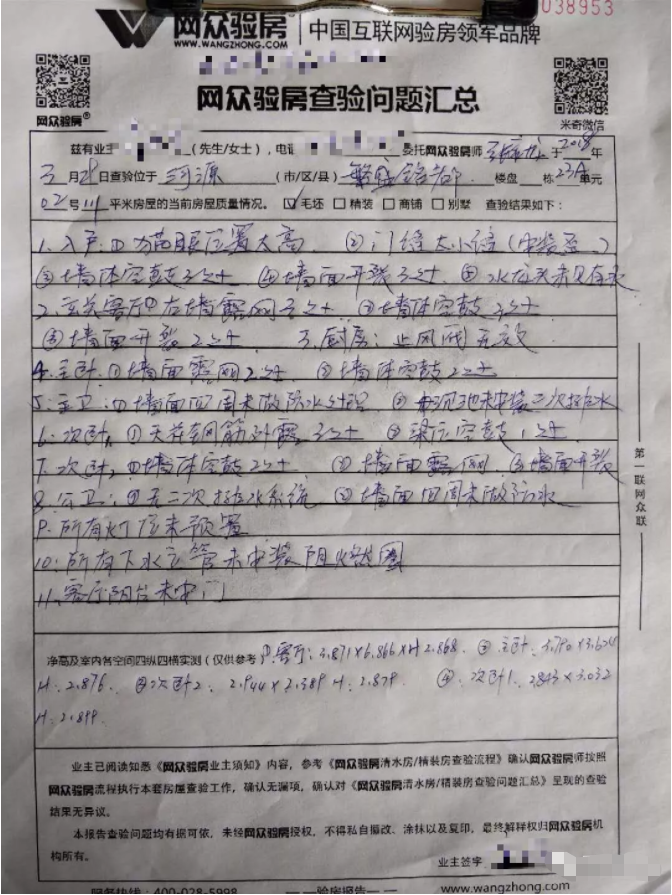 038953
网众验房® WWW.WANGZHONG.COM 中国互联网验房领军品牌
网众验房®
米奇微信
网众验房查验问题汇总
兹有业主 (先生/女士),电话 委托网众验房师 2018年
3月29日查验位于河源(市/区/县) 楼盘 栋23A单元
02号111平米房屋的当前房屋质量情况。☑毛坯 □精装 □商铺 □别墅 查验结果如下:
1. 入户:① 猫眼位置太高 ② 门缝大小缝
③墙体空鼓3处 ④墙面开裂3处 ⑤水龙头未见存水
2. 玄关客厅①右墙露网3处 ②墙体空鼓3处
③墙面开裂2处 3. 厨房:止风阀无效
4. 主卧:①墙面露网2处 ②墙体空鼓2处
5. 主卫:①墙面四周未做防水处理 ② 沉池未安装二次排水
6. 次卧1 ①天花钢筋外露3处 ②梁位空鼓1处
7. 次卧2 ①墙体空鼓2处 ②墙面露网 ③墙面开裂
8. 公卫:①无二次排水系统 ②墙面四周未做防水
9. 所有灯位未预置
10. 所有下水立管未安装阻火圈
11. 客厅阳台未安门
净高及室内各空间四纵四横实测(仅供参考 ①客厅:3.871×6.866×H2.868. ②主卧:3.790×3.624
H:2.876. ③次卧2: 2.944×2.389 H:2.879. ④.次卧1. 2.843×3.032
H:2.899
业主已阅读知悉《网众验房业主须知》内容,参考《网众验房清水房/精装房查验流程》确认网众验房师按照
网众验房流程执行本套房屋查验工作,确认无漏项,确认对《网众验房清水房/精装房查验问题汇总》呈现的查验
结果无异议。
本报告查验问题均有据可依,未经网众验房授权,不得私自撮改、涂抹以及复印,最终解释权归网众验房机
构所有。
业主签字:
服务热线:400-028-5998 — —验房报告— — www.wangzhong.com
第一联网众联